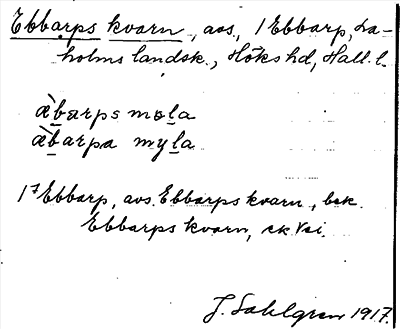 Ebbarps kvarn, avs., 1 Ebbarp, La-
holms landsk., Höks hd, Hall. l.
æ̀barps møla
æ̀barpa myla
1⁷ Ebbarp, avs. Ebbarps kvarn, bek.
Ebbarps kvarn, ek
J. Sahlgren 1917.